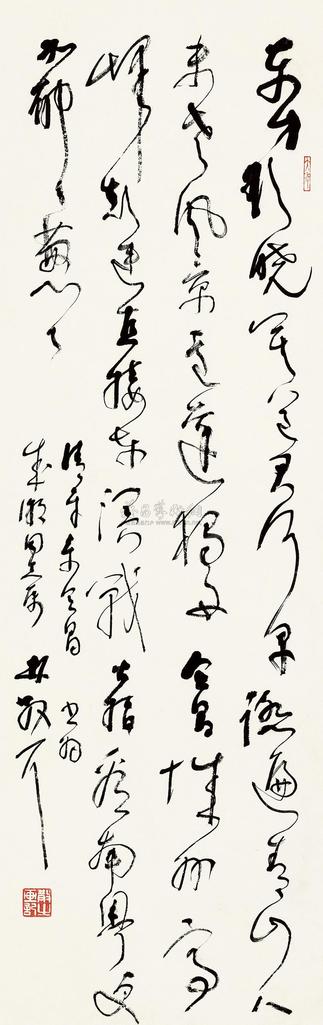 东方欲晓莫道君行早踏遍青山人
未老风景这边独好会昌城外高
峰颠连直接东溟战士指看南粤更
加郁郁葱葱
清平乐会昌 书为
同志属 林散耳